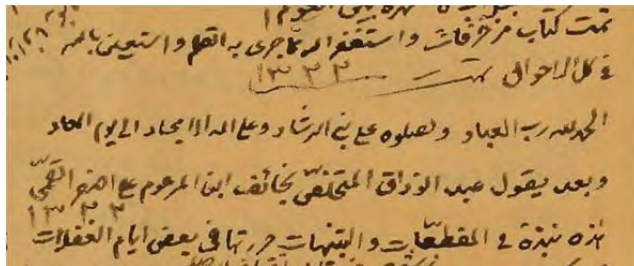 تمت كتاب مزخرفات واستغفر الله مما جرى به القلم واستعين بالله
في كل الاحوال تمت ١٣٢٢
الحمد لله رب العباد وصلوة على نبي الرشاد وعلى اله الامجاد الى يوم المعاد
وبعد يقول عبد الرزاق المتخلص بخائف ابن المرحوم علي اصغر القمي
١٣٢٢
هذه نبذة في المقطعات والتنبيهات حررتها في بعض ايام الغفلات